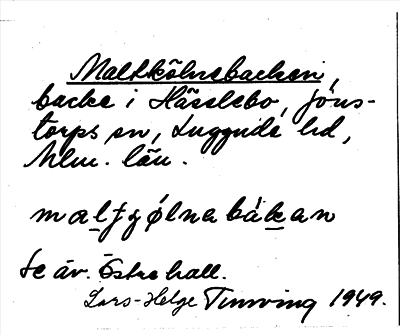 Maltkölnebacken,
backe i Hässlebo, Jons-
torps sn, Luggude hd,
Mlm. län.
maltçø̀lnabákan
Se äv. Östra hall.
Lars-Helge Tunving 1949.